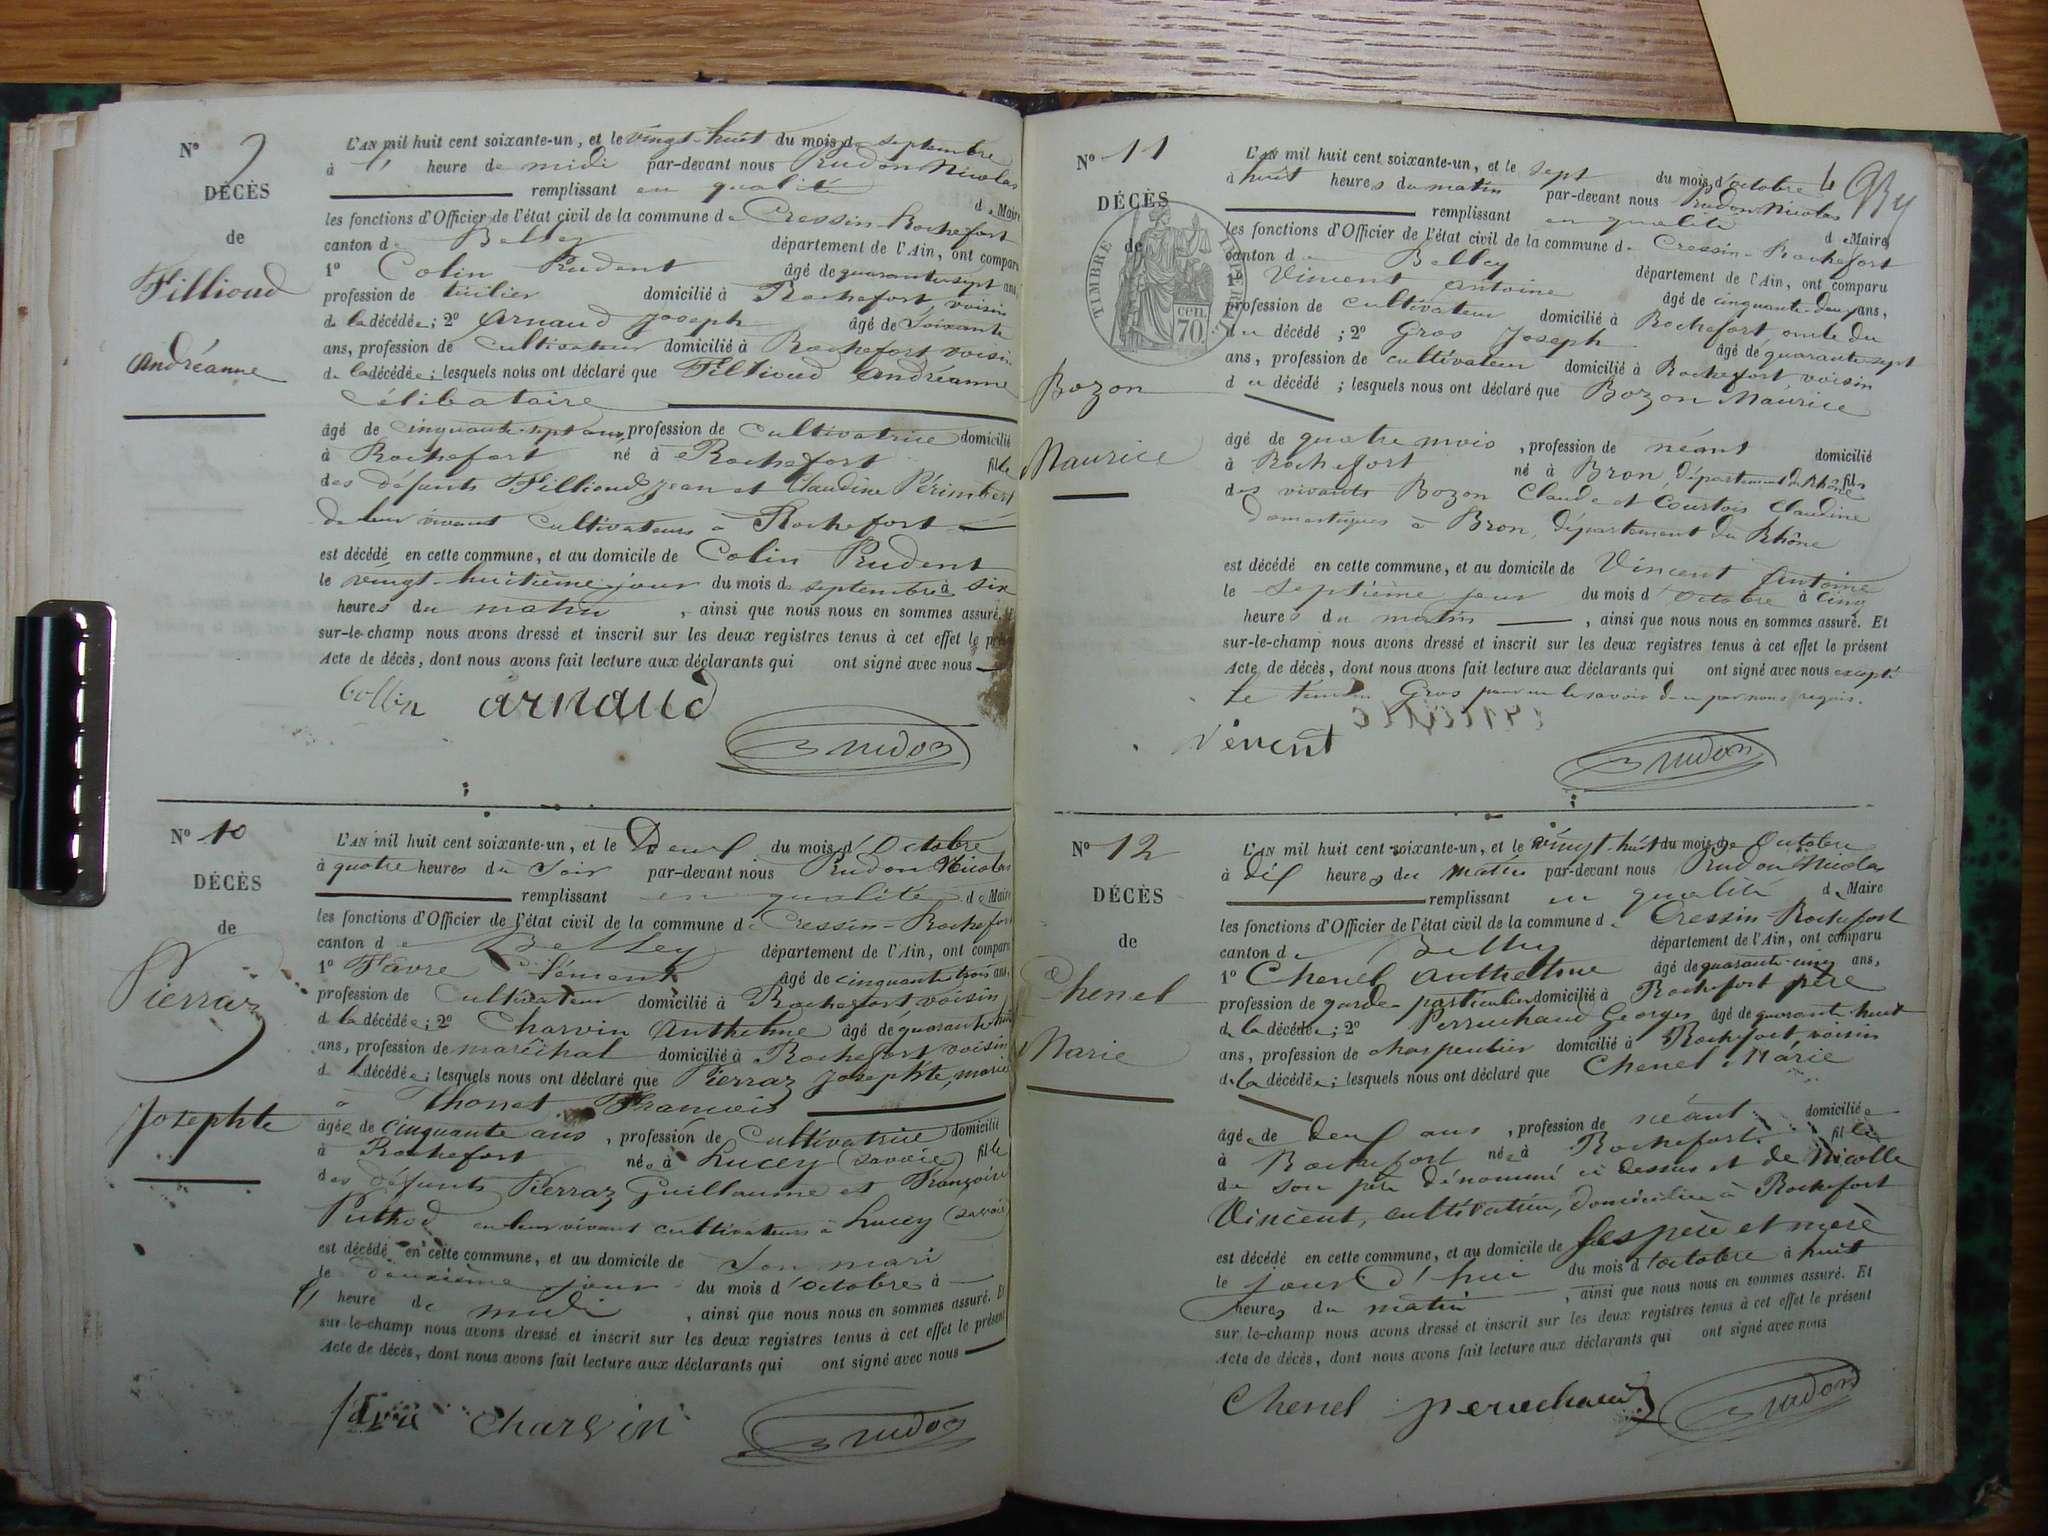 N° 9
DÉCÈS
de
Fillioud
Andréanne
L'AN mil huit cent soixante-un, et le vingt-huit du mois de septembre
à 1 heure de midi par-devant nous Rudon Nicolas
remplissant en qualité de Maire
les fonctions d'Officier de l'état civil de la commune de Cressin-Rochefort
canton de Belley département de l'Ain, ont comparu
1° Colin Prudent âgé de quarante-sept ans,
profession de tuilier domicilié à Rochefort, voisin
de la décédée; 2° Arnaud Joseph âgé de soixante
ans, profession de cultivateur domicilié à Rochefort voisin
de la décédée; lesquels nous ont déclaré que Fillioud Andréanne
célibataire
âgé de cinquante-sept ans, profession de cultivatrice domicilié
à Rochefort né à Rochefort fille
des défunts Fillioud Jean et Claudine Périmbert
de leur vivant cultivateurs à Rochefort
est décédé en cette commune, et au domicile de Colin Prudent
le vingt-huitième jour du mois de septembre à six
heures du matin, ainsi que nous nous en sommes assuré. Et
sur-le-champ nous avons dressé et inscrit sur les deux registres tenus à cet effet le présent
Acte de décès, dont nous avons fait lecture aux déclarants qui ont signé avec nous
Collin arnaud
Rudon
N° 10
DÉCÈS
de
Pierraz
Josephte
L'AN mil huit cent soixante-un, et le Deux du mois d'Octobre
à quatre heures du Soir par-devant nous Rudon Nicolas
remplissant en qualité de Maire
les fonctions d'Officier de l'état civil de la commune de Cressin-Rochefort
canton de Belley département de l'Ain, ont comparu
1° Favre Clément âgé de cinquante trois ans,
profession de Cultivateur domicilié à Rochefort voisin
d la décédée; 2° Charvin Anthelme âgé de quarante-huit
ans, profession de maréchal domicilié à Rochefort voisin
de l décédée; lesquels nous ont déclaré que Pierraz Josephte, mariée
à Thonnet François
âgée de cinquante ans, profession de cultivatrice domicilié
à Rochefort née à Lucey (Savoie) fille
des défunts Pierraz Guillaume et Françoise
Puthod en leur vivant cultivateurs à Lucey (Savoie)
est décédé en cette commune, et au domicile de Son mari
le deuxième jour du mois d'Octobre à
1 heure de midi, ainsi que nous nous en sommes assuré. Et
sur-le-champ nous avons dressé et inscrit sur les deux registres tenus à cet effet le présent
Acte de décès, dont nous avons fait lecture aux déclarants qui ont signé avec nous
charvin
Rudon
N° 11
DÉCÈS
de
TIMBRE IMPERIAL
70 cen.
Bozon
Maurice
L'AN mil huit cent soixante-un, et le sept du mois d'octobre
à huit heures du matin par-devant nous Rudon Nicolas
remplissant en qualité de Maire
les fonctions d'Officier de l'état civil de la commune de Cressin-Rochefort
canton de Belley département de l'Ain, ont comparu
1° Vincent Antoine âgé de cinquante-deux ans,
profession de cultivateur domicilié à Rochefort oncle du
du décédé; 2° Gros Joseph âgé de quarante-sept
ans, profession de cultivateur domicilié à Rochefort, voisin
du décédé; lesquels nous ont déclaré que Bozon Maurice
âgé de quatre mois, profession de néant domicilié
à Rochefort né à Bron, département du Rhône fils
des vivants Bozon Claude et Courtois Claudine
domestiques à Bron, département du Rhône
est décédé en cette commune, et au domicile de Vincent Antoine
le Septième jour du mois d'octobre à cinq
heures du matin, ainsi que nous nous en sommes assuré. Et
sur-le-champ nous avons dressé et inscrit sur les deux registres tenus à cet effet le présent
Acte de décès, dont nous avons fait lecture aux déclarants qui ont signé avec nous excepté
le témoin Gros pour ne le savoir de ce par nous requis.
Vincent
Rudon
N° 12
DÉCÈS
de
Chenel
Marie
L'AN mil huit cent soixante-un, et le vingt-huit du mois de Octobre
à dix heures du matin par-devant nous Rudon Nicolas
remplissant en qualité de Maire
les fonctions d'Officier de l'état civil de la commune de Cressin-Rochefort
canton de Belley département de l'Ain, ont comparu
1° Chenel Anthelme âgé de quarante-un ans,
profession de garde-particulier domicilié à Rochefort père
de la décédée; 2° Perruchaud Georges âgé de quarante-huit
ans, profession de charpentier domicilié à Rochefort voisin
de la décédée; lesquels nous ont déclaré que Chenel Marie
âgée de deux ans, profession de néant domiciliée
à Rochefort née à Rochefort fille
de son père dénommé ci dessus et de Nicolle
Vincent, cultivatrice, domiciliée à Rochefort
est décédé en cette commune, et au domicile de ses père et mère
le jour d'hui du mois d'octobre à huit
heures du matin, ainsi que nous nous en sommes assuré. Et
sur le-champ nous avons dressé et inscrit sur les deux registres tenus à cet effet le présent
Acte de décès, dont nous avons fait lecture aux déclarants qui ont signé avec nous
Chenel perruchaud Rudon